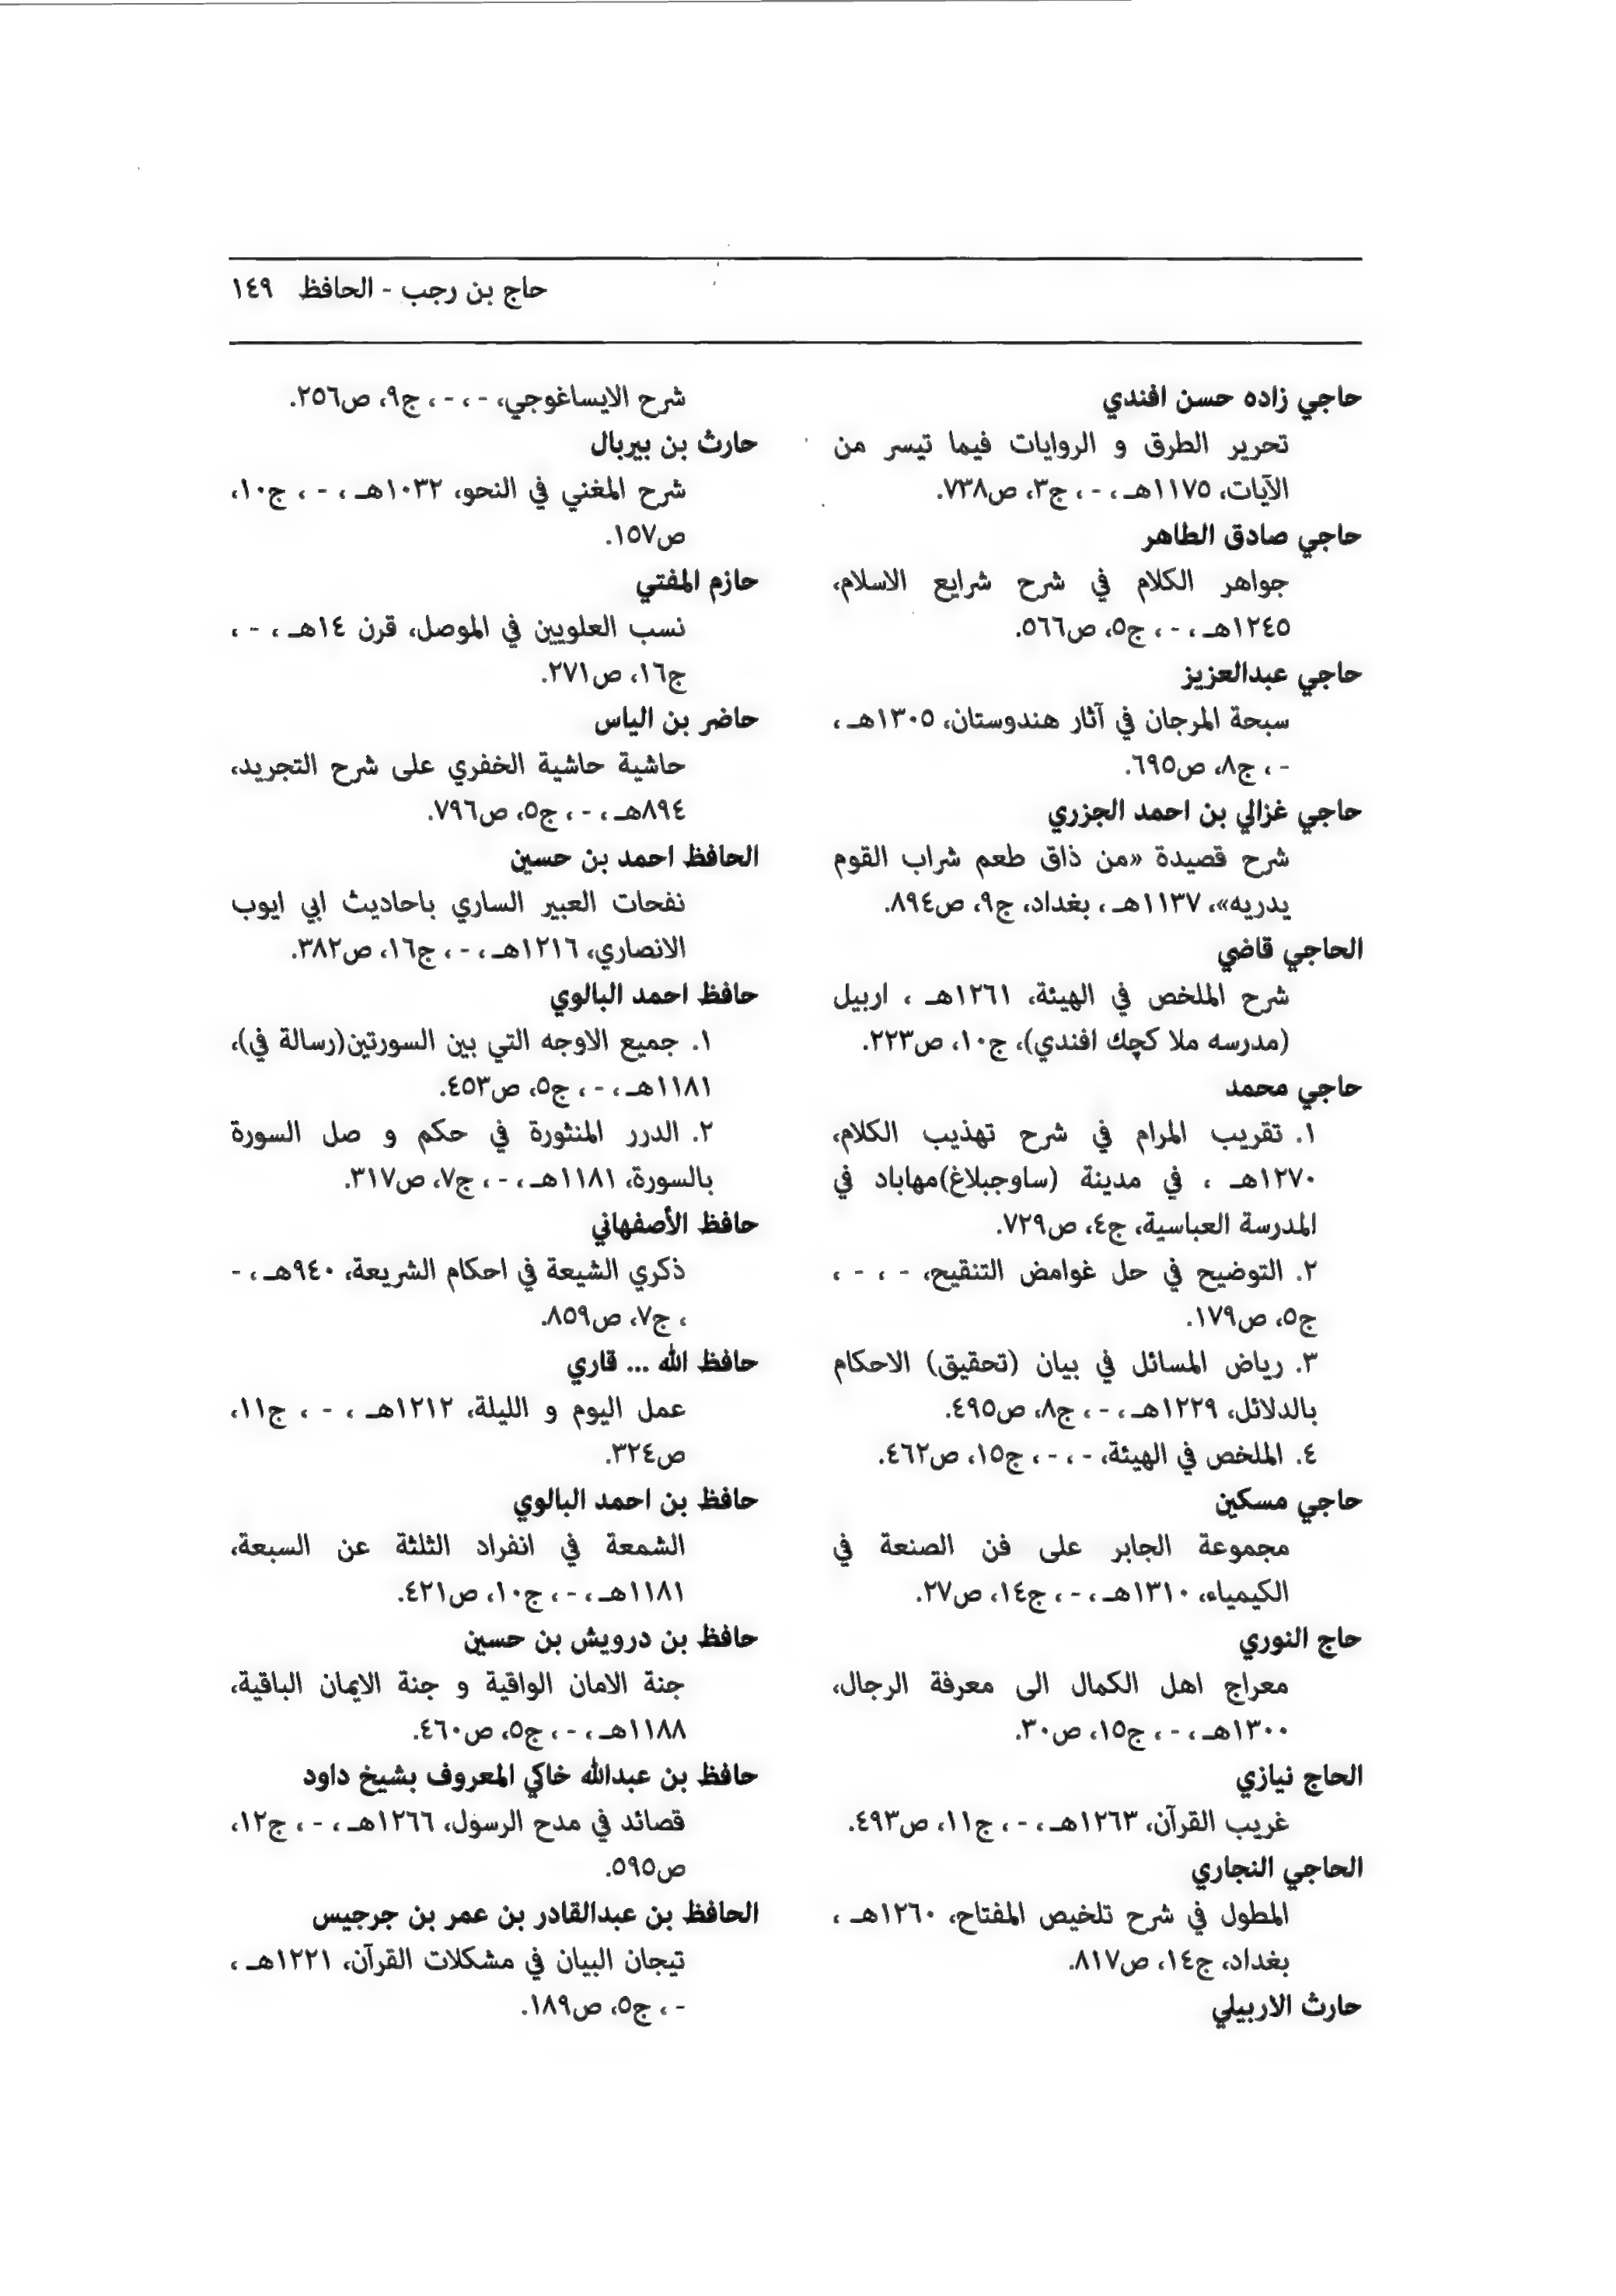 حاج بن رجب - الحافظ ١٤٩
حاجي زاده حسن افندي
تحرير الطرق و الروايات فيما تيسر من
الآيات، ١١٧٥هـ ، - ، ج٣، ص٧٣٨.
حاجي صادق الطاهر
جواهر الكلام في شرح شرايع الاسلام،
١٢٤٥هـ ، - ، ج٥، ص٥٦٦.
حاجي عبدالعزيز
سبحة المرجان في آثار هندوستان، ١٣٠٥هـ ،
- ، ج٨، ص٦٩٥.
حاجي غزالي بن احمد الجزري
شرح قصيدة «من ذاق طعم شراب القوم
يدريه»، ١١٣٧هـ ، بغداد، ج٩، ص٨٩٤.
الحاجي قاضي
شرح الملخص في الهيئة، ١٢٦١هـ ، اربيل
(مدرسه ملا كچك افندي)، ج١٠، ص٢٢٣.
حاجي محمد
١. تقريب المرام في شرح تهذيب الكلام،
١٢٧٠هـ ، في مدينة (ساوجبلاغ)مهاباد في
المدرسة العباسية، ج٤، ص٧٢٩.
٢. التوضيح في حل غوامض التنقيح، - ، - ،
ج٥، ص١٧٩.
٣. رياض المسائل في بيان (تحقيق) الاحكام
بالدلائل، ١٢٢٩هـ ، - ، ج٨، ص٤٩٥.
٤. الملخص في الهيئة، - ، - ، ج١٥، ص٤٦٢.
حاجي مسكين
مجموعة الجابر على فن الصنعة في
الكيمياء، ١٣١٠هـ ، - ، ج١٤، ص٢٧.
حاج النوري
معراج اهل الكمال الى معرفة الرجال،
١٣٠٠هـ ، - ، ج١٥، ص٣٠.
الحاج نيازي
غريب القرآن، ١٢٦٣هـ ، - ، ج١١، ص٤٩٣.
الحاجي النجاري
المطول في شرح تلخيص المفتاح، ١٢٦٠هـ ،
بغداد، ج١٤، ص٨١٧.
حارث الاربيلي
شرح الايساغوجي، - ، - ، ج٩، ص٢٥٦.
حارث بن بيربال
شرح المغني في النحو، ١٠٣٢هـ ، - ، ج١٠،
ص١٥٧.
حازم المفتي
نسب العلويين في الموصل، قرن ١٤هـ ، - ،
ج١٦، ص٢٧١.
حاضر بن الياس
حاشية حاشية الخفري على شرح التجريد،
٨٩٤هـ ، - ، ج٥، ص٧٩٦.
الحافظ احمد بن حسين
نفحات العبير الساري باحاديث ابي ايوب
الانصاري، ١٢١٦هـ ، - ، ج١٦، ص٣٨٢.
حافظ احمد البالوي
١. جميع الاوجه التي بين السورتين(رسالة في)،
١١٨١هـ ، - ، ج٥، ص٤٥٣.
٢. الدرر المنثورة في حكم و صل السورة
بالسورة، ١١٨١هـ ، - ، ج٧، ص٣١٧.
حافظ الأصفهاني
ذكري الشيعة في احكام الشريعة، ٩٤٠هـ ، -
، ج٧، ص٨٥٩.
حافظ الله ... قاري
عمل اليوم و الليلة، ١٢١٢هـ ، - ، ج١١،
ص٣٢٤.
حافظ بن احمد البالوي
الشمعة في انفراد الثلثة عن السبعة،
١١٨١هـ ، - ، ج١٠، ص٤٢١.
حافظ بن درويش بن حسين
جنة الامان الواقية و جنة الايمان الباقية،
١١٨٨هـ ، - ، ج٥، ص٤٦٠.
حافظ بن عبدالله خاكي المعروف بشيخ داود
قصائد في مدح الرسول، ١٢٦٦هـ ، - ، ج١٢،
ص٥٩٥.
الحافظ بن عبدالقادر بن عمر بن جرجيس
تيجان البيان في مشكلات القرآن، ١٢٢١هـ ،
- ، ج٥، ص١٨٩.